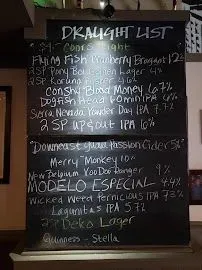 DRAUGHT LIST
Coors Light
Flying Fish Cranberry Braggot 12%
2SP Pony Boi Lager 4%
2SP
Conshy Blood Money 6.7%
Dogfish Head IPA
Sierra Nevada Powder Day IPA 7.
2 SP up & out IPA
Downeast Guava Passion Cider 5%
Merry Monkey 10%
New Belgium VooDoo Ranger 9%
MODELO ESPECIAL 4.4%
Wicked Weed Pernicious IPA 7.3%
Lagunitas IPA 5.7%
2SP Deko Lager
Guinness - Stella